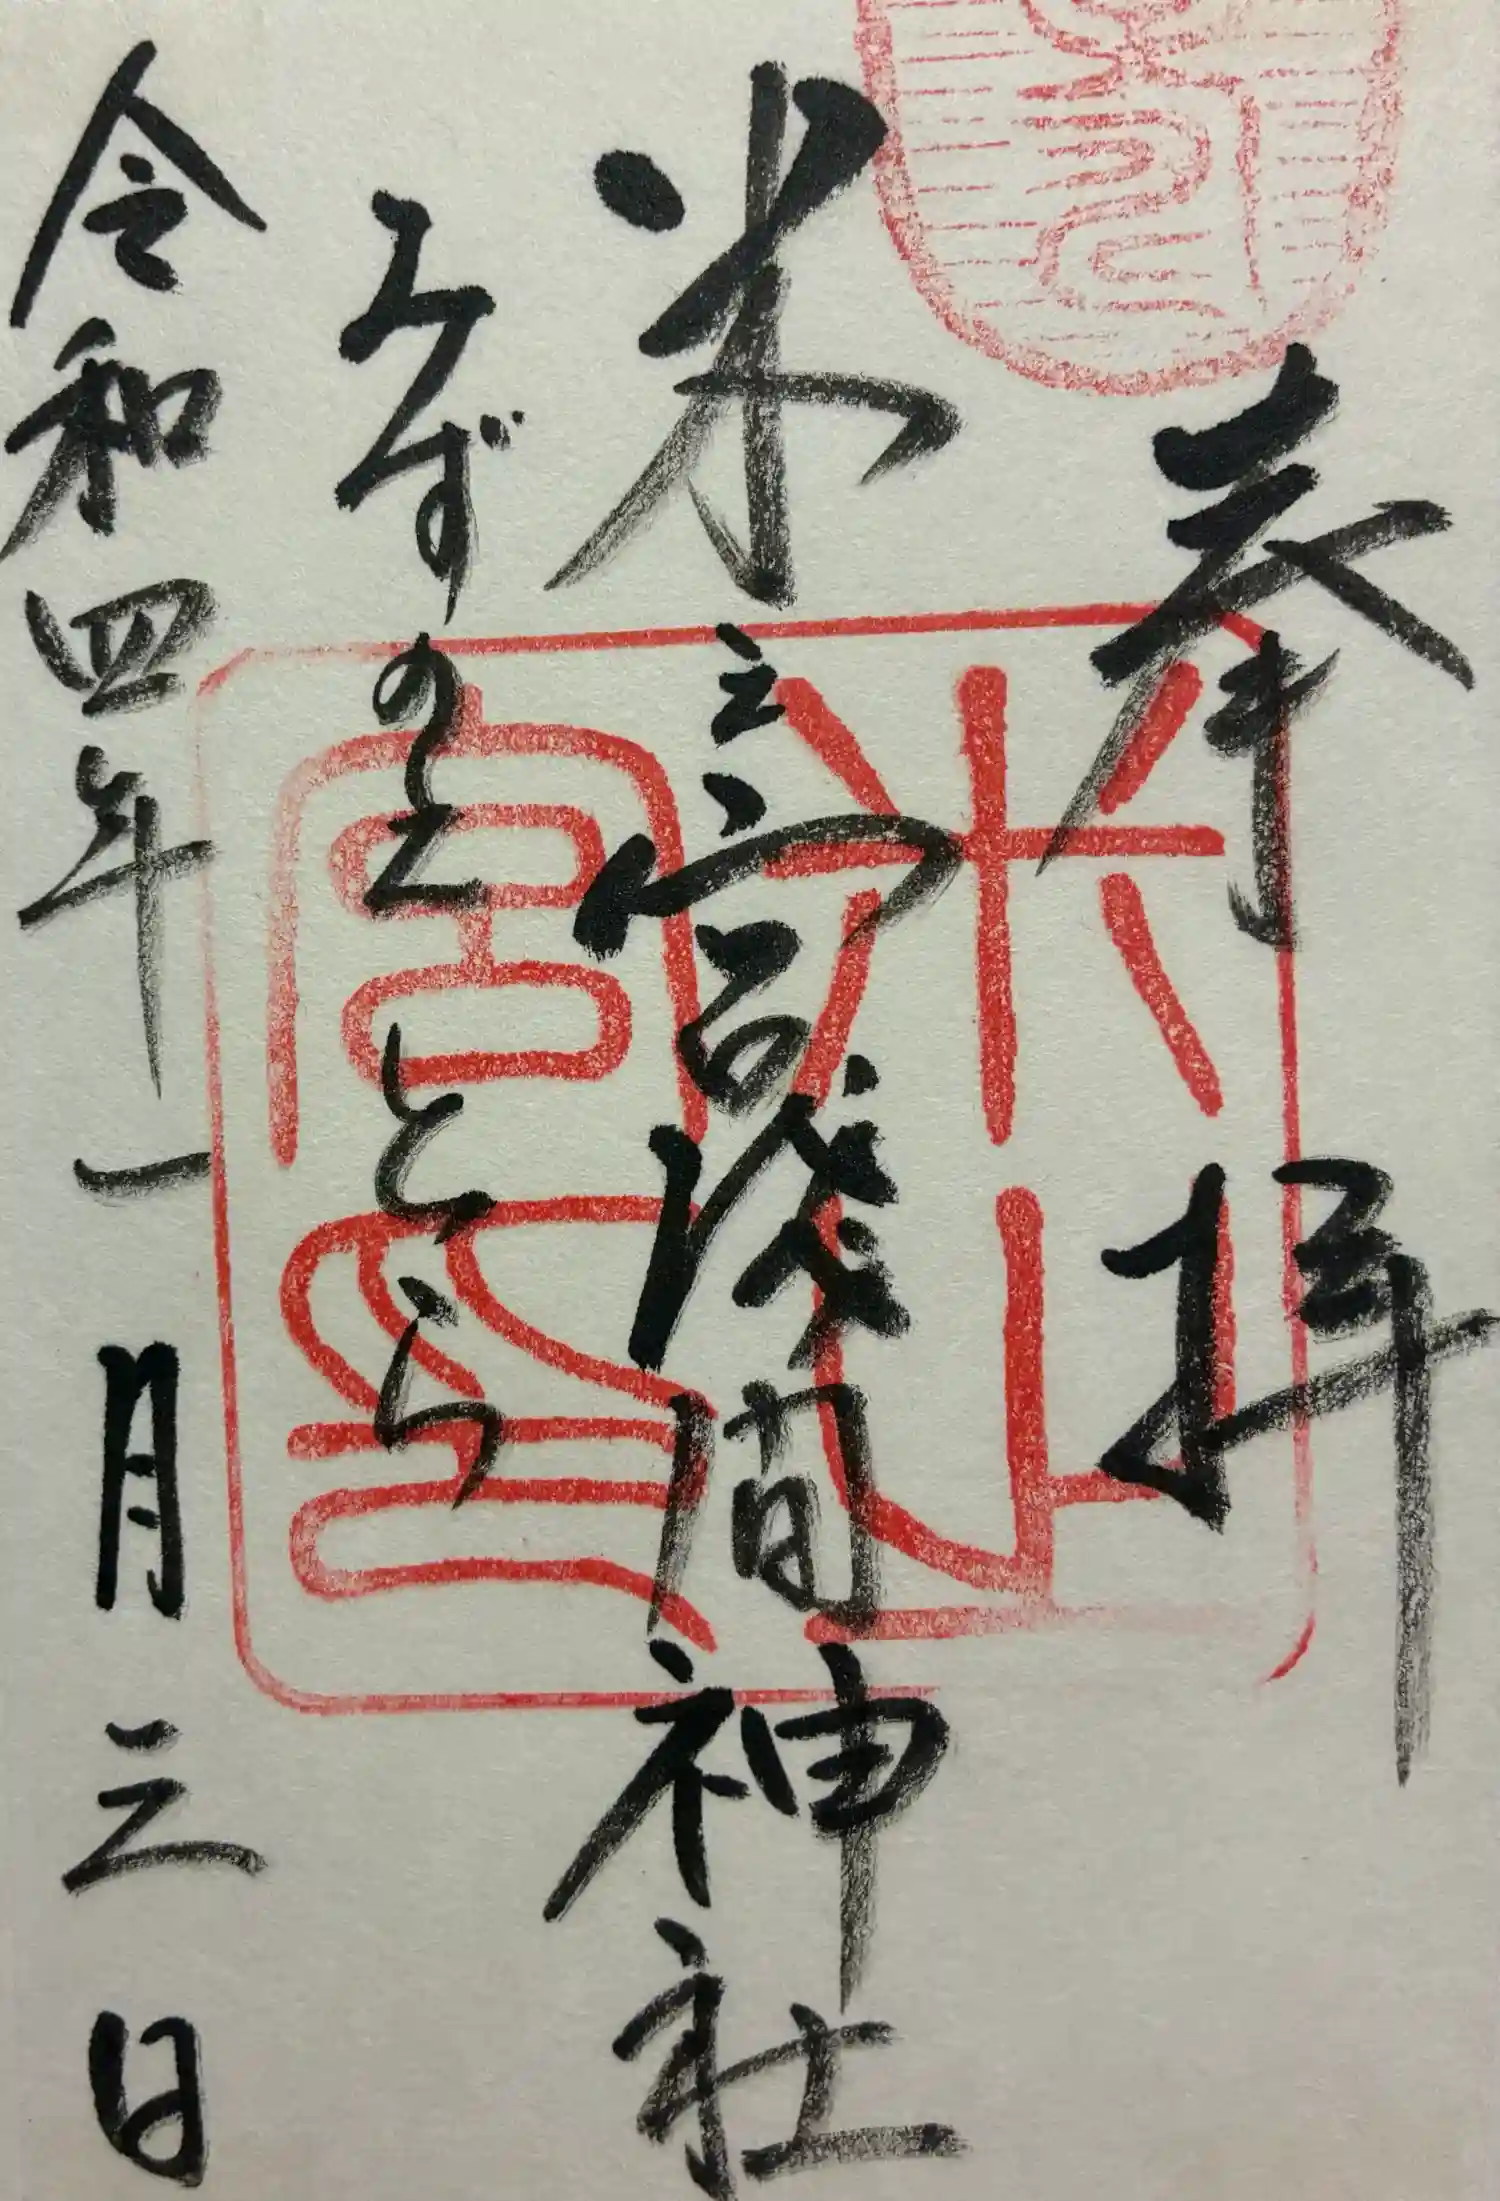 奉拝
米之宮浅間神社
みずのえとら
令和四年一月三日
米之宮印